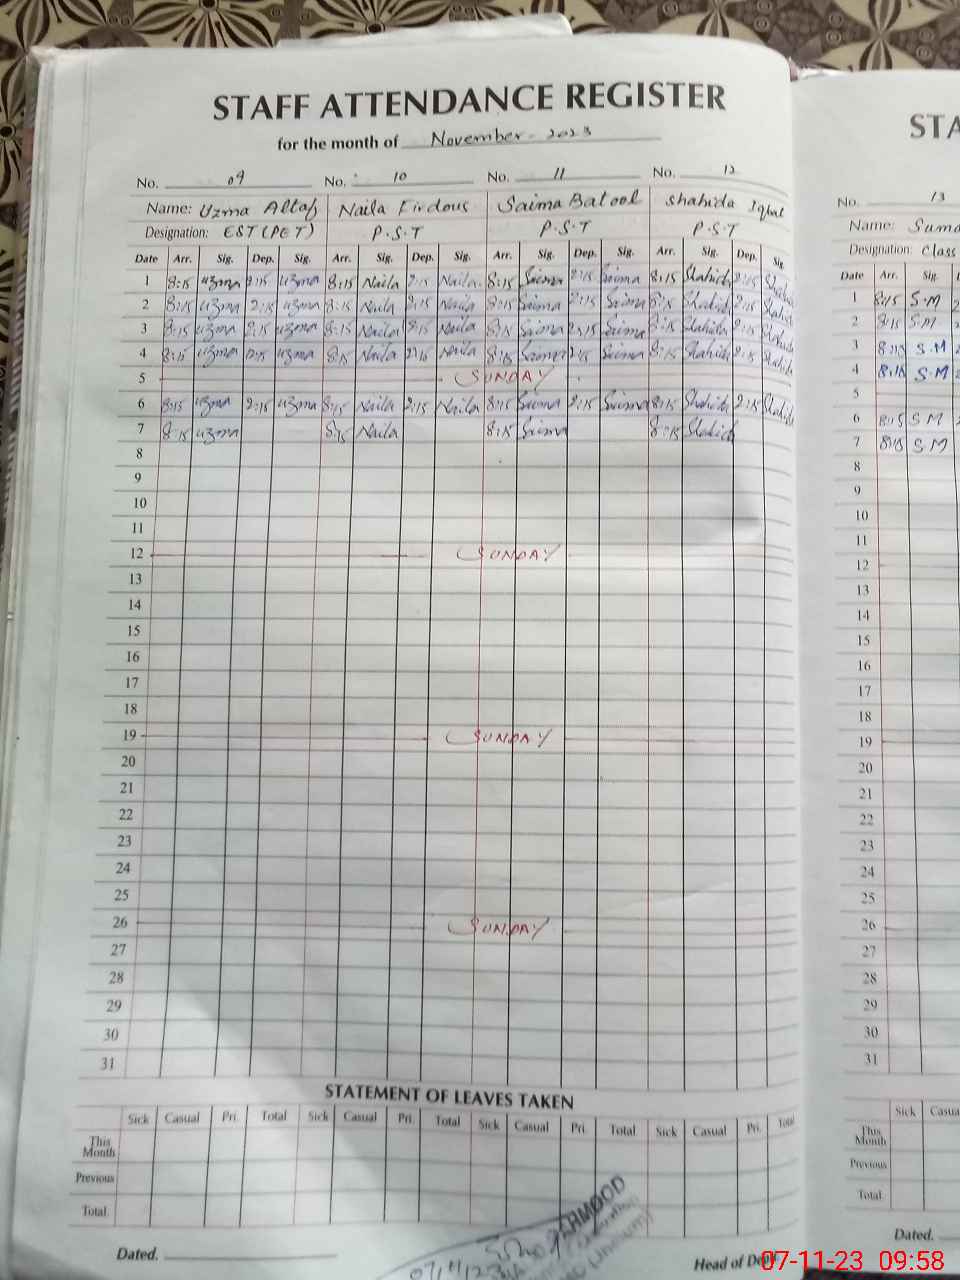 STAFF ATTENDANCE REGISTER
for the month of November - 2023
No. 09 No. 10 No. 11 No. 12
Name: Uzma Altaf Naila Firdous Saima Batool Shahida Iqbal
Designation: EST (PET) P.S.T P.S.T P.S.T
Date Arr. Sig. Dep. Sig. Arr. Sig. Dep. Sig. Arr. Sig. Dep. Sig. Arr. Sig. Dep. Sig.
1 8:15 uzma 2:15 uzma 8:15 Naila 2:15 Naila 8:15 Saima 2:15 Saima 8:15 Shahida 2:15 Shahida
2 8:15 uzma 2:15 uzma 8:15 Naila 2:15 Naila 8:15 Saima 2:15 Saima 8:15 Shahida 2:15 Shahida
3 8:15 uzma 2:15 uzma 8:15 Naila 2:15 Naila 8:15 Saima 2:15 Saima 8:15 Shahida 2:15 Shahida
4 8:15 uzma uzma 8:15 Naila Naila 8:15 Saima Saima 8:15 Shahida 2:15 Shahida
5 SUNDAY
6 8:15 uzma 2:15 uzma 8:15 Naila 2:15 Naila 8:15 Saima 2:15 Saima 8:15 Shahida 2:15 Shahida
7 8:15 uzma 8:15 Naila 8:15 Saima 8:15 Shahida
8
9
10
11
12 SUNDAY
13
14
15
16
17
18
19 SUNDAY
20
21
22
23
24
25
26 SUNDAY
27
28
29
30
31
STATEMENT OF LEAVES TAKEN
Sick Casual Pri. Total Sick Casual Pri. Total Sick Casual Pri. Total Sick Casual Pri. Total
This Month
Previous
Total
Dated. Head of Dep
07/11/23
STA
No. 13
Name: Suma
Designation: Class
Date Arr. Sig.
1 8:15 S.M
2 8:15 S.M
3 8:15 S.M
4 8:15 S.M
5
6 8:15 S.M
7 8:15 S.M
8
9
10
11
12
13
14
15
16
17
18
19
20
21
22
23
24
25
26
27
28
29
30
31
Sick Casua
This Month
Previous
Total
Dated.
07-11-23 09:58